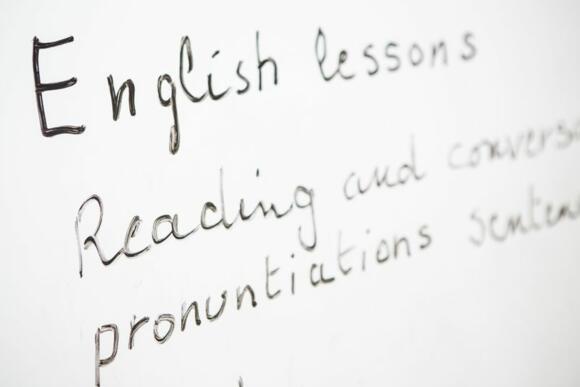 English lessons
Reading and convers
pronuntiations senten